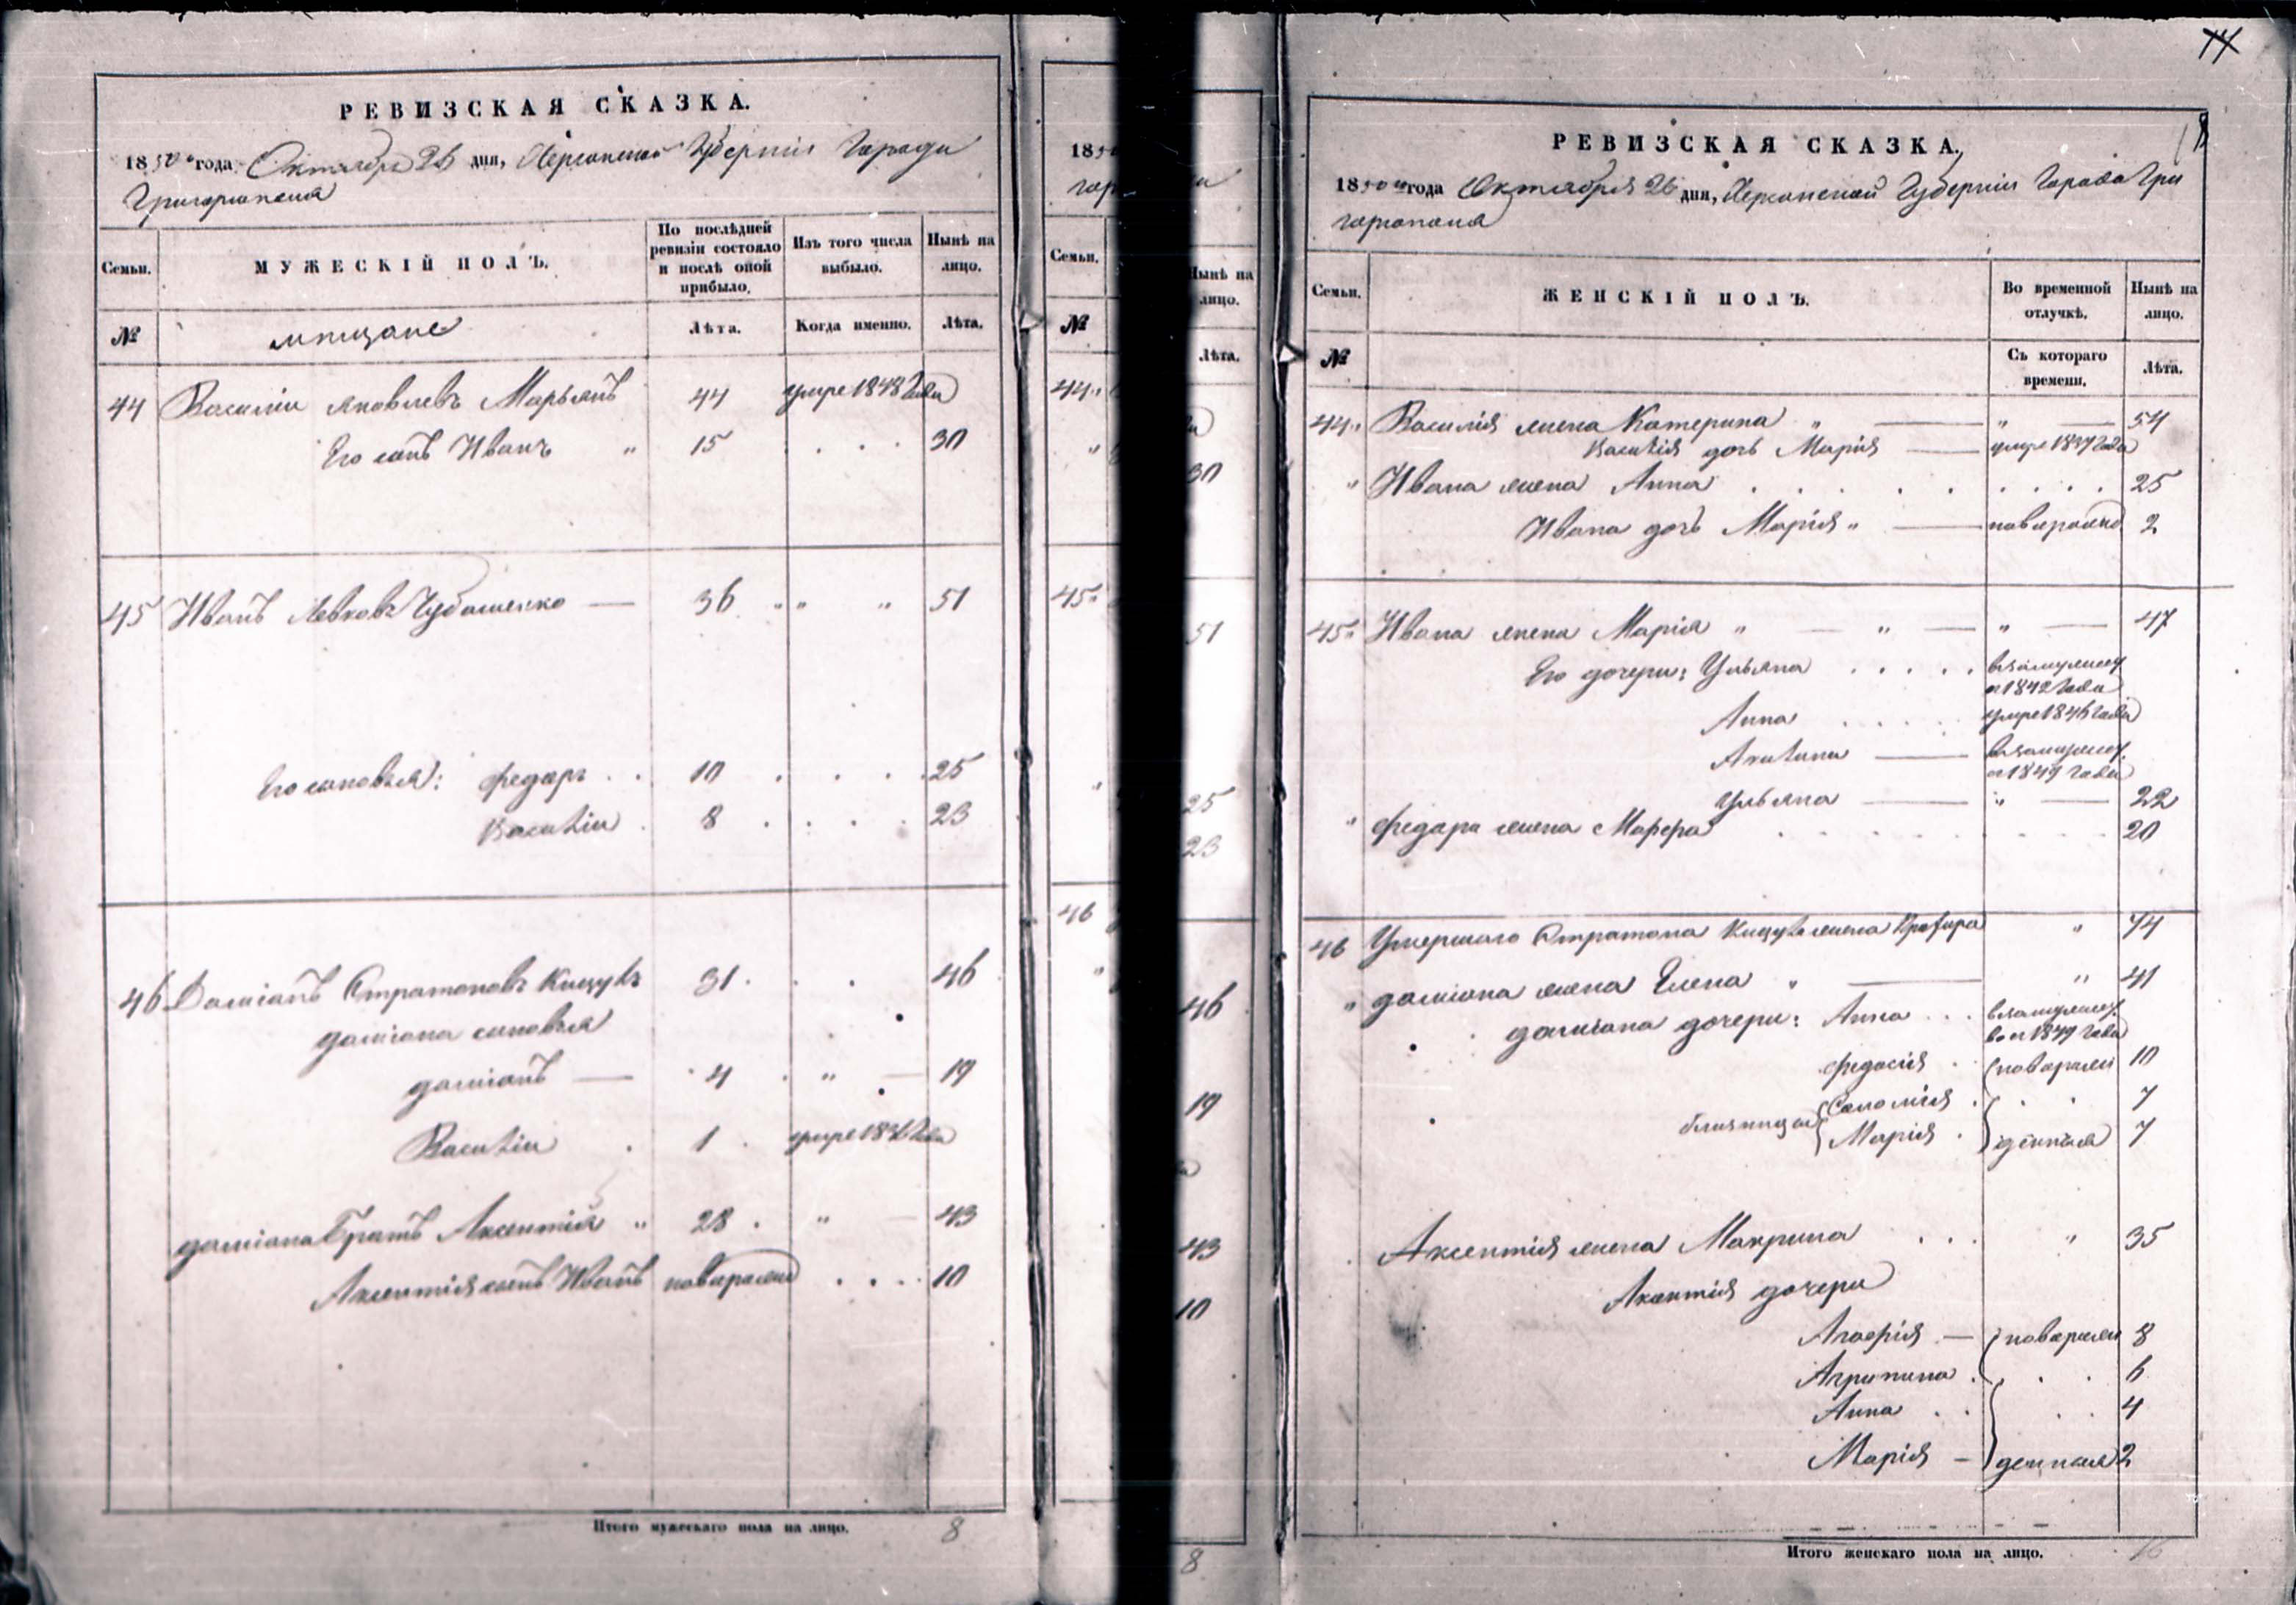 РЕВИЗСКАЯ СКАЗКА.
1850 года Октября 26 дня, Херсонской Губернии Города
Григориополя
Семьи. МУЖЕСКІЙ ПОЛЪ. По послѣдней ревизіи состояло и послѣ оной прибыло. Изъ того числа выбыло. Нынѣ на лицо.
№ мещане Лѣта. Когда именно. Лѣта.
44 Василии Яковлевъ Марьянъ 44 умре 1848 года
Его сынъ Иванъ " 15 . . . 30
45 Иванъ Левковъ Чубашенко — 36 " " " 51
Его сыновья: Федоръ . . 10 . . . . 25
Василіи . 8 . . . . 23
46 Даміанъ Стратоновъ Кицукъ 31 . . . 46
Даміана сыновья
Даміанъ — 4 . " — 19
Василіи . 1 . умре года
Даміана Братъ Аксентій " 28 . " — 43
Аксентія сынъ Иванъ новорожд . . . . 10
Итого мужескаго пола на лицо. 8
18
Семьи.
№
44 "
"
45 "
"
46
"
Нынѣ на
лицо.
Лѣта.
30
51
25
23
46
19
43
10
8
14
18
РЕВИЗСКАЯ СКАЗКА.
1850 года Октября 26 дня, Херсонской Губерніи Города Гри
гориополя
Семьи. ЖЕНСКІЙ ПОЛЪ. Во временной отлучкѣ. Нынѣ на лицо.
№ Съ котораго времени. Лѣта.
44 " Василія жена Катерина " — " — 54
Василія дочь Марія — умре года
" Ивана жена Анна . . . . . . . . . 25
Ивана дочь Марія " — новорожд 2
45 " Ивана жена Марія " — " — " — 47
Его дочери: Ульяна . . . . . взамужест
съ 1842 года
Анна . . . . умре 1846 года
— взамужест.
съ 1849 года
Ульяна — " — 22
" Федора жена Марфа . . . . . . . 20
46 Умершаго Стратона Кицука жена " 74
" Даміана жена Елена " — " 41
Даміана дочери: Анна . . . взамужест.
съ 1849 года
Федосія . новорожд 10
близнецы Саломія . . . 7
Марія . 7
Аксентія жена Макрина . . . " 35
Аксентія дочери
Агафія — новорожд 8
Агрипина . . . 6
Анна . . . . 4
Марія — 2
Итого женскаго пола на лицо. 16